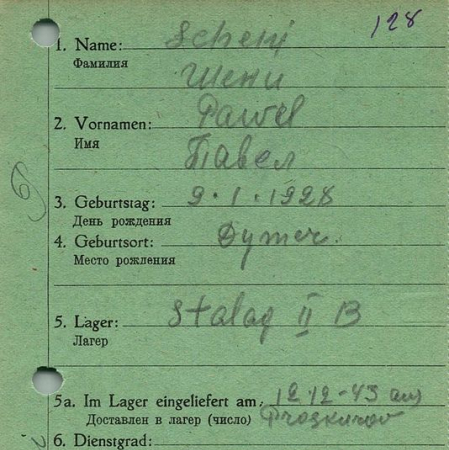 128
1. Name: Schenj
Фамилия
Шени
2. Vornamen: Pawel
Имя
Павел
3. Geburtstag: 9.1.1928
День рождения
4. Geburtsort: Dymer.
Место рождения
5. Lager: Stalag II B
Лагер
5a. Im Lager eingeliefert am: 12.12-43 aus
Доставлен в лагер (число) Proskurov
6. Dienstgrad: